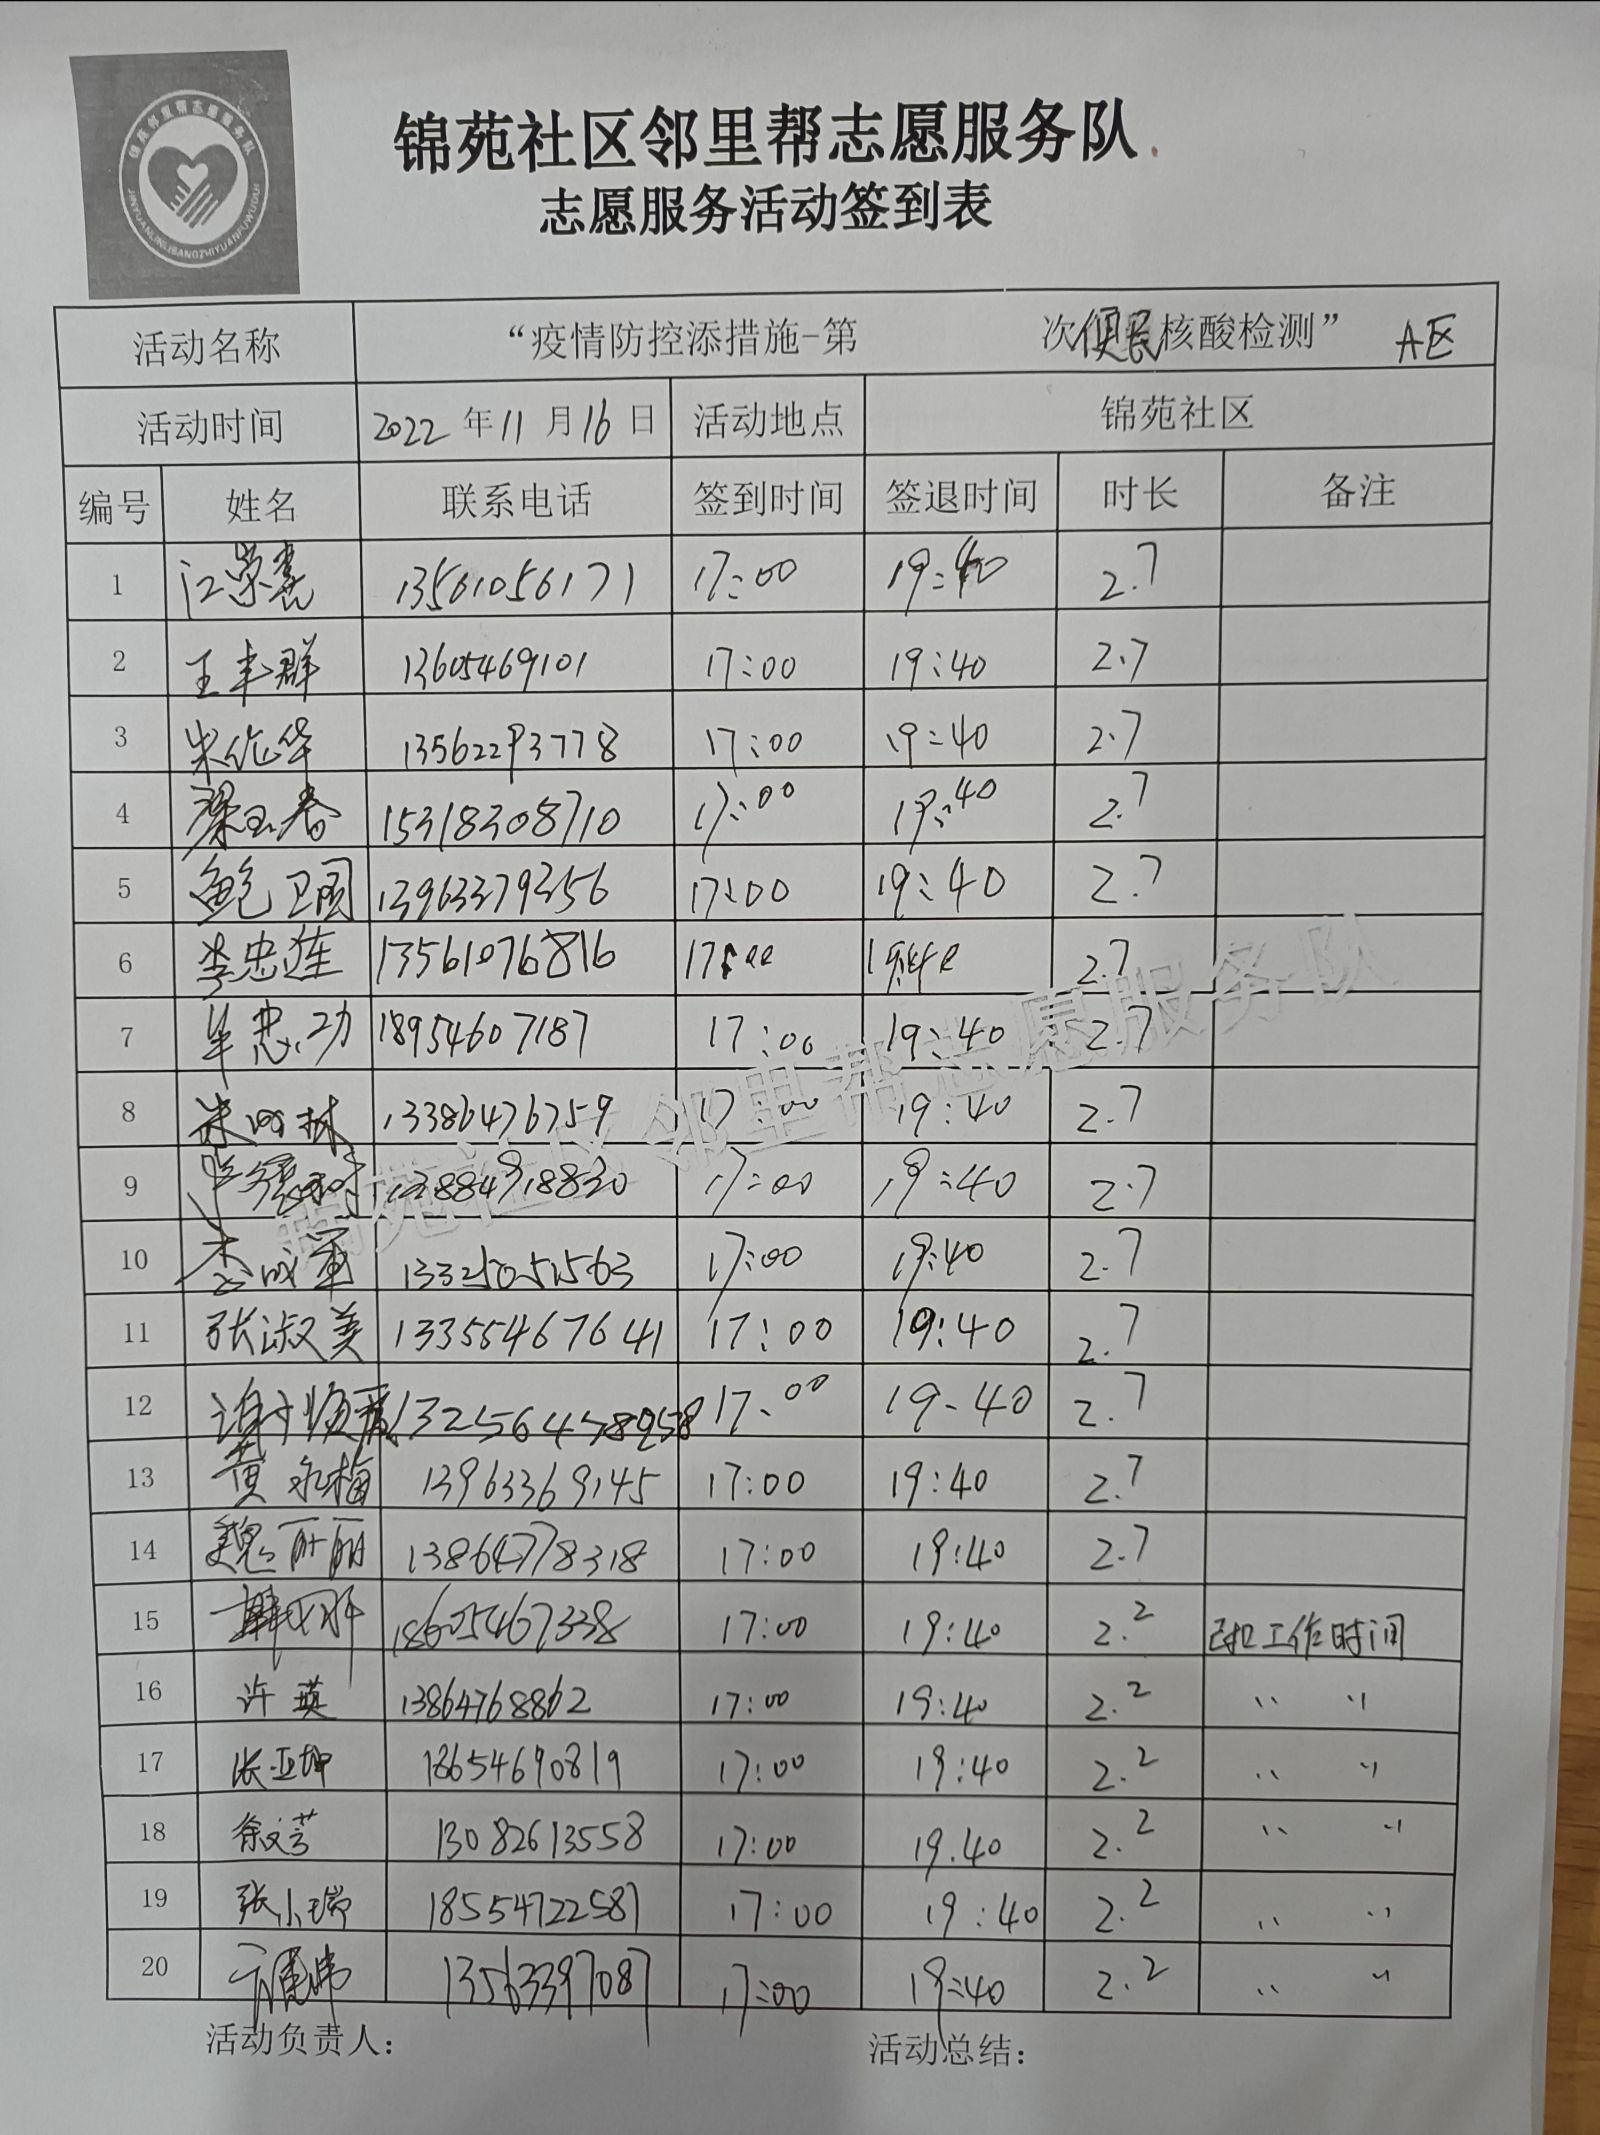 锦苑邻里帮志愿服务队
JINYUANLINLIBANGZHIYUANFUWUDUI
锦苑社区邻里帮志愿服务队
志愿服务活动签到表
活动名称 “疫情防控添措施-第 次便民核酸检测” A区
活动时间 2022年11月16日 活动地点 锦苑社区
编号 姓名 联系电话 签到时间 签退时间 时长 备注
1 13561056171 17:00 19:40 2.7
2 王丰群 13605469101 17:00 19:40 2.7
3 朱作华 13562293778 17:00 19:40 2.7
4 梁玉春 15318308710 17:00 19:40 2.7
5 鲍卫国 13963379356 17:00 19:40 2.7
6 李忠莲 13561076816 17:00 2.7
7 牟忠功 18954607187 17:00 19:40 2.7
8 13386476759 17:00 19:40 2.7
9 17:00 19:40 2.7
10 13325051563 17:00 19:40 2.7
11 张淑美 13355467641 17:00 19:40 2.7
12 17:00 19-40 2.7
13 黄永梅 13963369145 17:00 19:40 2.7
14 魏丽丽 13864778318 17:00 19:40 2.7
15 18605467338 17:00 19:40 2.2 已扣工作时间
16 许英 13864768862 17:00 19:40 2.2 〃 〃
17 张亚坤 18654690819 17:00 19:40 2.2 〃 〃
18 徐文芳 13082613558 17:00 19.40 2.2 〃 〃
19 张小瑞 18554722587 17:00 19:40 2.2 〃 〃
20 13563397087 17:00 19:40 2.2 〃 〃
锦苑社区邻里帮志愿服务队
活动负责人： 活动总结：